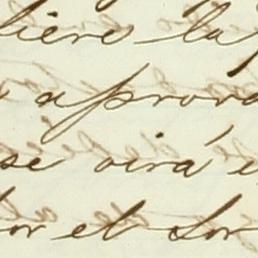 tiere la
aprova
se oirá e
or el Sor